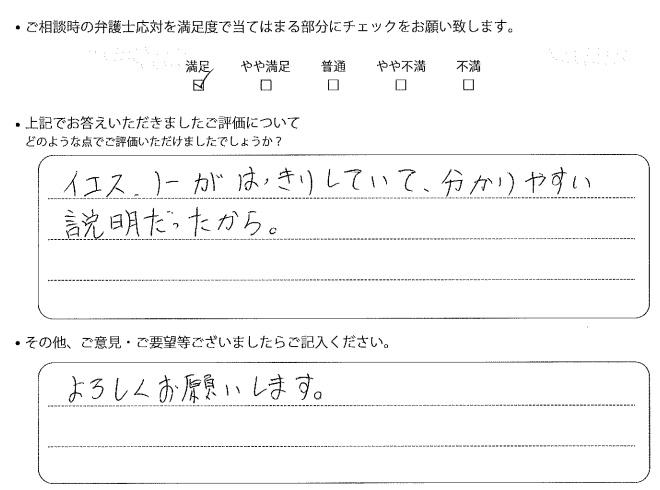 • ご相談時の弁護士応対を満足度で当てはまる部分にチェックをお願い致します。
満足 やや満足 普通 やや不満 不満
☑ □ □ □ □
• 上記でお答えいただきましたご評価について
どのような点でご評価いただけましたでしょうか？
イエス、ノーがはっきりしていて、分かりやすい
説明だったから。
• その他、ご意見・ご要望等ございましたらご記入ください。
よろしくお願いします。